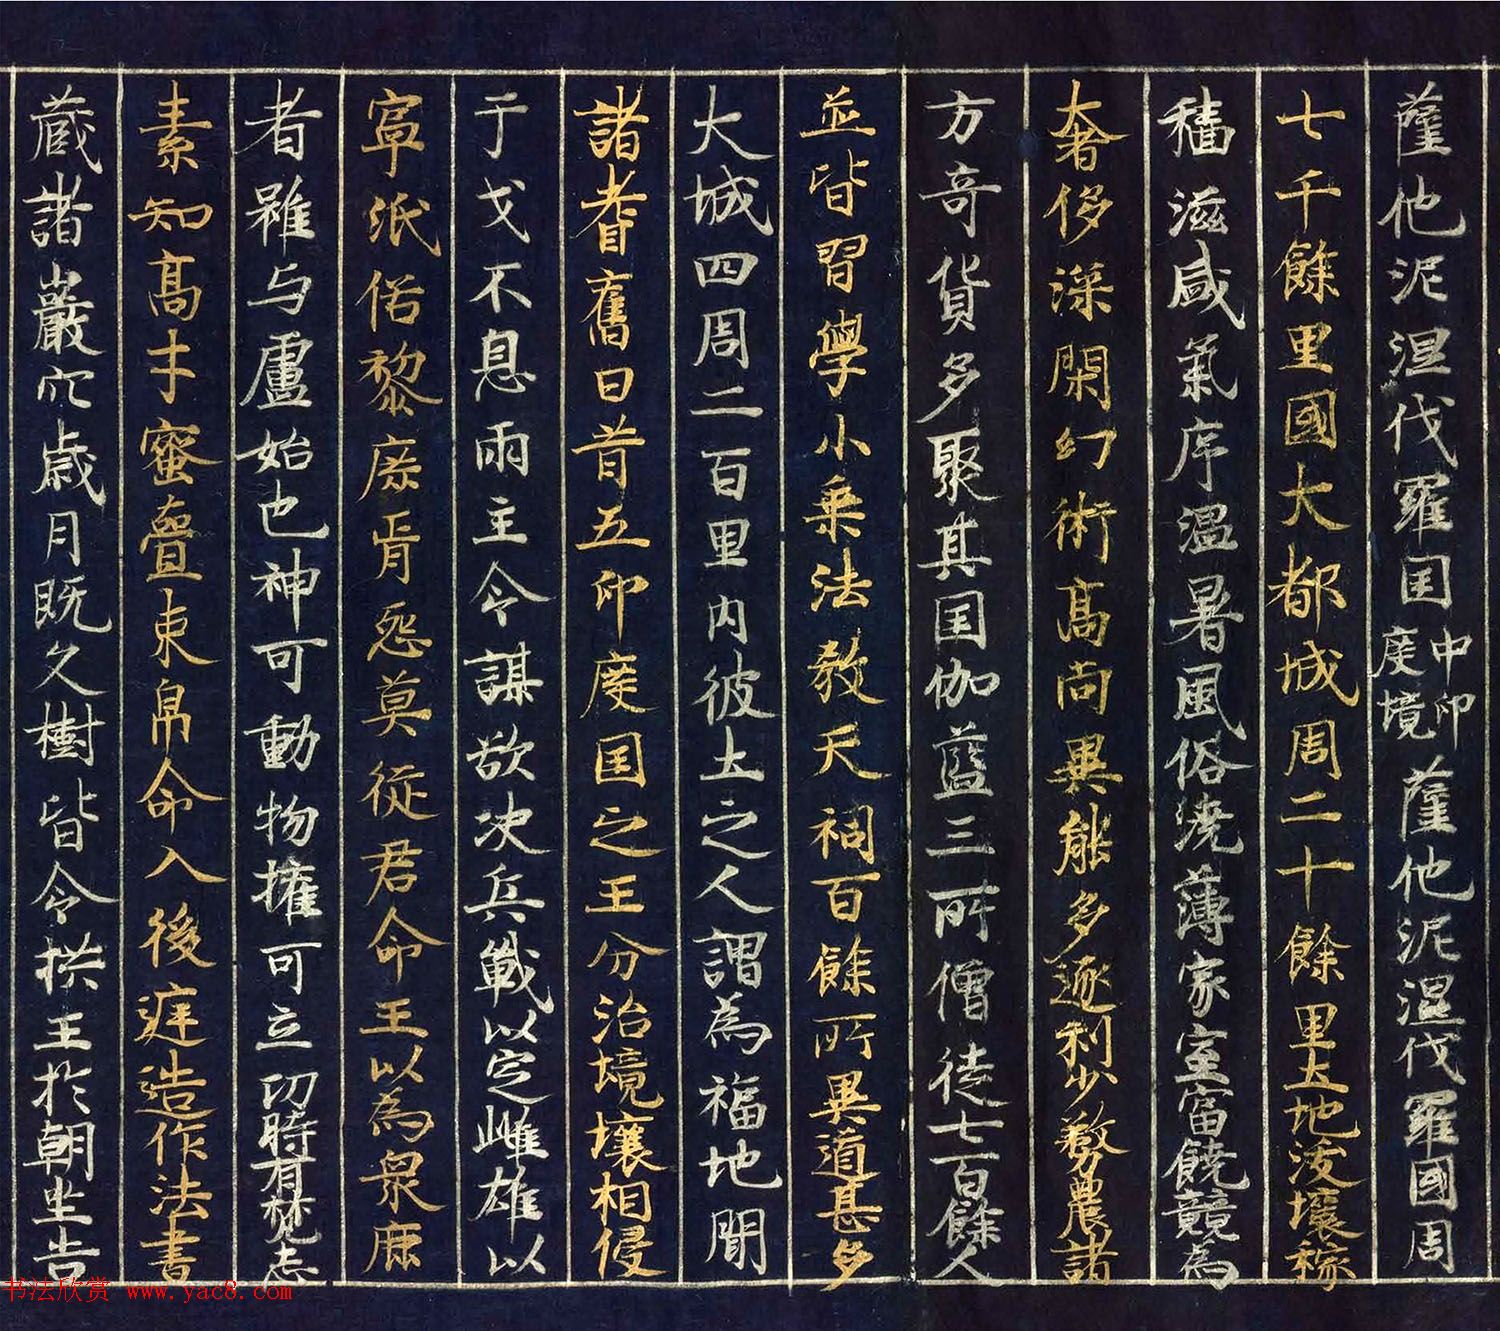 薩他泥湿伐羅国中印度境薩他泥湿伐羅國周
七千餘里國大都城周二十餘里土地沃壤稼
穡滋盛氣序温暑風俗澆薄家室富饒競為
奢侈深閑幻術高尚異能多逐利少務農諸
方奇貨多聚其国伽藍三所僧徒七百餘人
並皆習學小乗法教天祠百餘所異道甚多
大城四周二百里内彼土之人謂為福地聞
諸耆舊曰昔五印度国之王分治境壤相侵
于戈不息兩主合謀欲决兵戰以定雌雄以
寧氓俗黎庶胥怨莫從君命王以為衆庶
者難与慮始也神可動物權可立㓛時有梵志
素知高才蜜賫束帛命入後庭造作法書
蔵諸巖穴歳月既久樹皆合拱王於朝坐告
书法欣赏 www.yac8.com